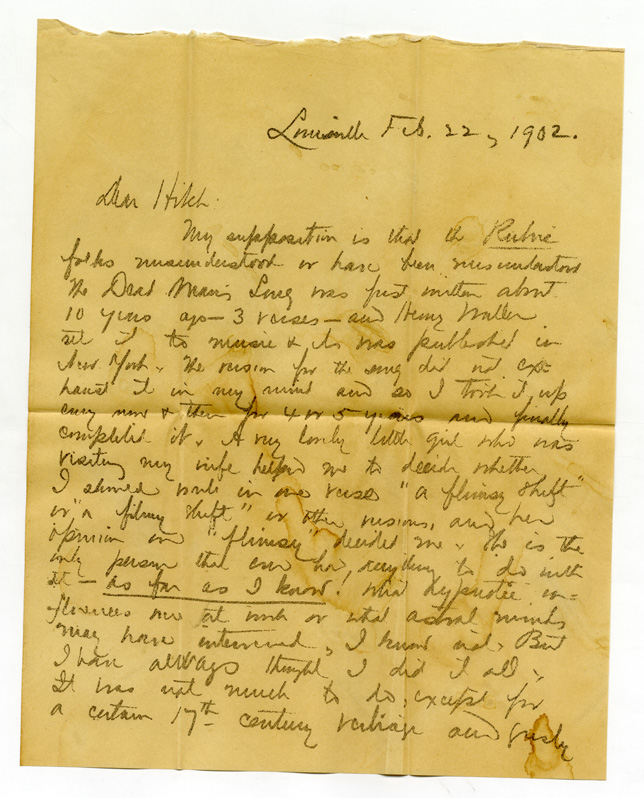 Louisville Feb. 22, 1902.
Dear Hitch
My supposition is that the Rubric
folks misunderstood or have been misunderstood
The Dead Men's Song was first written about
10 years ago - 3 verses - and Henry Waller
set it to music & it was published in
New York. The version for the song did not ex-
haust it in my mind and so I took it up
every now & then for 4 or 5 years and finally
completed it. A very lovely little girl who was
visiting my wife helped me to decide whether
I should write in one verse "a flimsy shift"
or "a filmy shift" or other versions, and her
opinion on "flimsy" decided me. She is the
only person that ever had anything to do with
it - as far as I know! What hypnotic in-
fluences were at work or what astral minds
may have intervened, I know not. But
I have always thought I did it all.
It was not much to do, except for
a certain 17th century verbiage and grisly